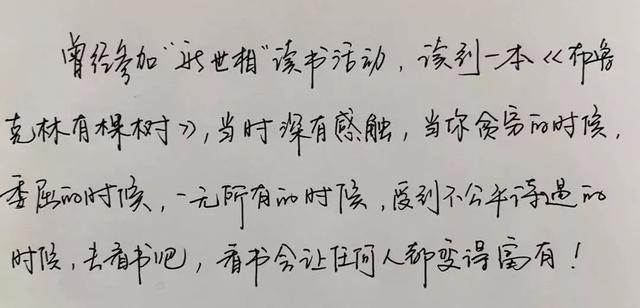 曾经参加“新世相”读书活动，读到一本《布鲁
克林有棵树》，当时深有感触，当你贫穷的时候，
委屈的时候，一无所有的时候，受到不公平待遇的
时候，去看书吧，看书会让任何人都变得富有！